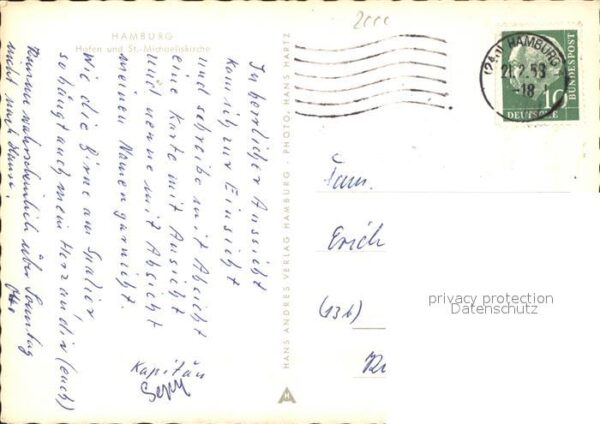 HAMBURG
Hafen und St.-Michaeliskirche
In herrlicher Aussicht
kam ich zur Einsicht
und schreibe mit Absicht
eine Karte mit Ansicht
und nenne mit Absicht
meinen Namen garnicht.
Wie die Birne am Spalier,
so hängt auch mein Herz an dir (euch)
Komme wahrscheinlich über Sonntag
nicht nach Hause.
Kapitän
Sepp
HANS ANDRES VERLAG HAMBURG · PHOTO: HANS HARTZ
2000
(24a) HAMBURG
-18
10
DEUTSCHE
BUNDESPOST
Fam.
Erich
(13b)
privacy protection
Datenschutz